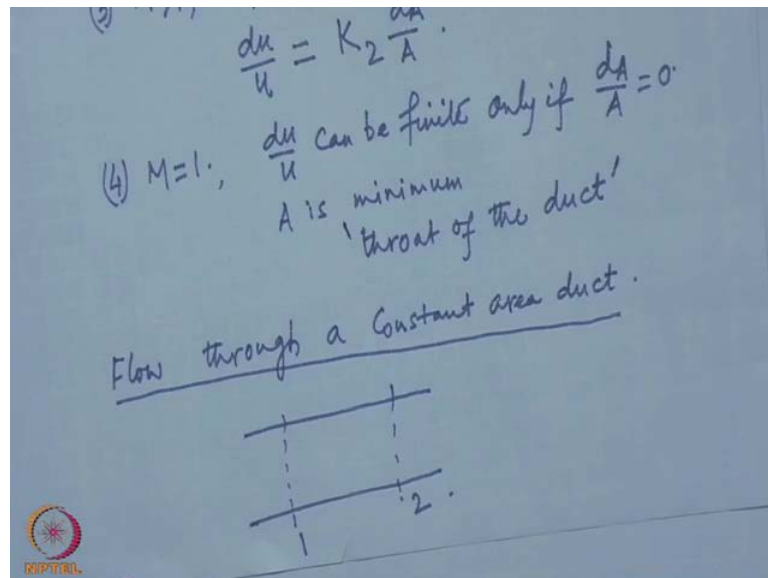 du/u = K₂ dA/A.
(4) M=1;, du/u can be finite only if dA/A = 0.
A is minimum
'throat of the duct'
Flow through a Constant area duct.
1 2.
NPTEL